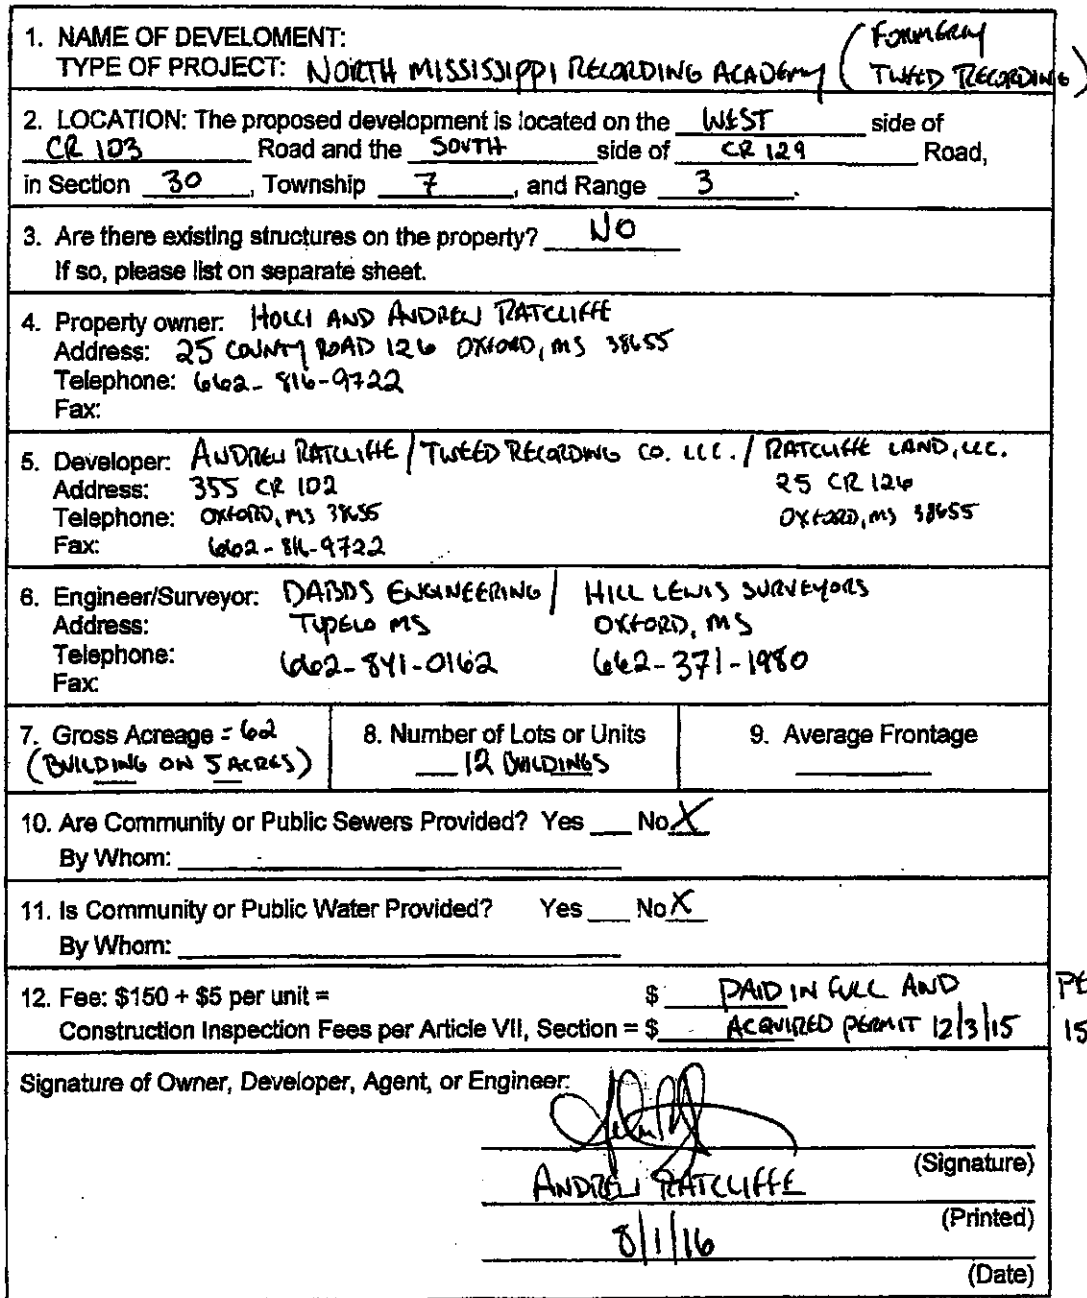 1. NAME OF DEVELOMENT:
TYPE OF PROJECT: NORTH MISSISSIPPI RECORDING ACADEMY (FORMERLY TWEED RECORDING)
2. LOCATION: The proposed development is located on the WEST side of
CR 103 Road and the SOUTH side of CR 129 Road,
in Section 30, Township 7, and Range 3.
3. Are there existing structures on the property? NO
If so, please list on separate sheet.
4. Property owner: HOLLI AND ANDREW RATCLIFFE
Address: 25 COUNTY ROAD 126 OXFORD, MS 38655
Telephone: 662-816-9722
Fax:
5. Developer: ANDREW RATCLIFFE / TWEED RECORDING CO. LLC. / RATCLIFFE LAND, LLC.
Address: 355 CR 102 25 CR 126
Telephone: OXFORD, MS 38655 OXFORD, MS 38655
Fax: 662-816-9722
6. Engineer/Surveyor: DABBS ENGINEERING / HILL LEWIS SURVEYORS
Address: TUPELO MS OXFORD, MS
Telephone: 662-841-0162 662-371-1980
Fax:
7. Gross Acreage = 62
(BUILDING ON 5 ACRES)
8. Number of Lots or Units
12 BUILDINGS
9. Average Frontage
10. Are Community or Public Sewers Provided? Yes ___ No X
By Whom:
11. Is Community or Public Water Provided? Yes ___ No X
By Whom:
12. Fee: $150 + $5 per unit = $ PAID IN FULL AND PE
Construction Inspection Fees per Article VII, Section = $ ACQUIRED PERMIT 12/3/15 15
Signature of Owner, Developer, Agent, or Engineer:
(Signature)
ANDREW RATCLIFFE
(Printed)
8/1/16
(Date)